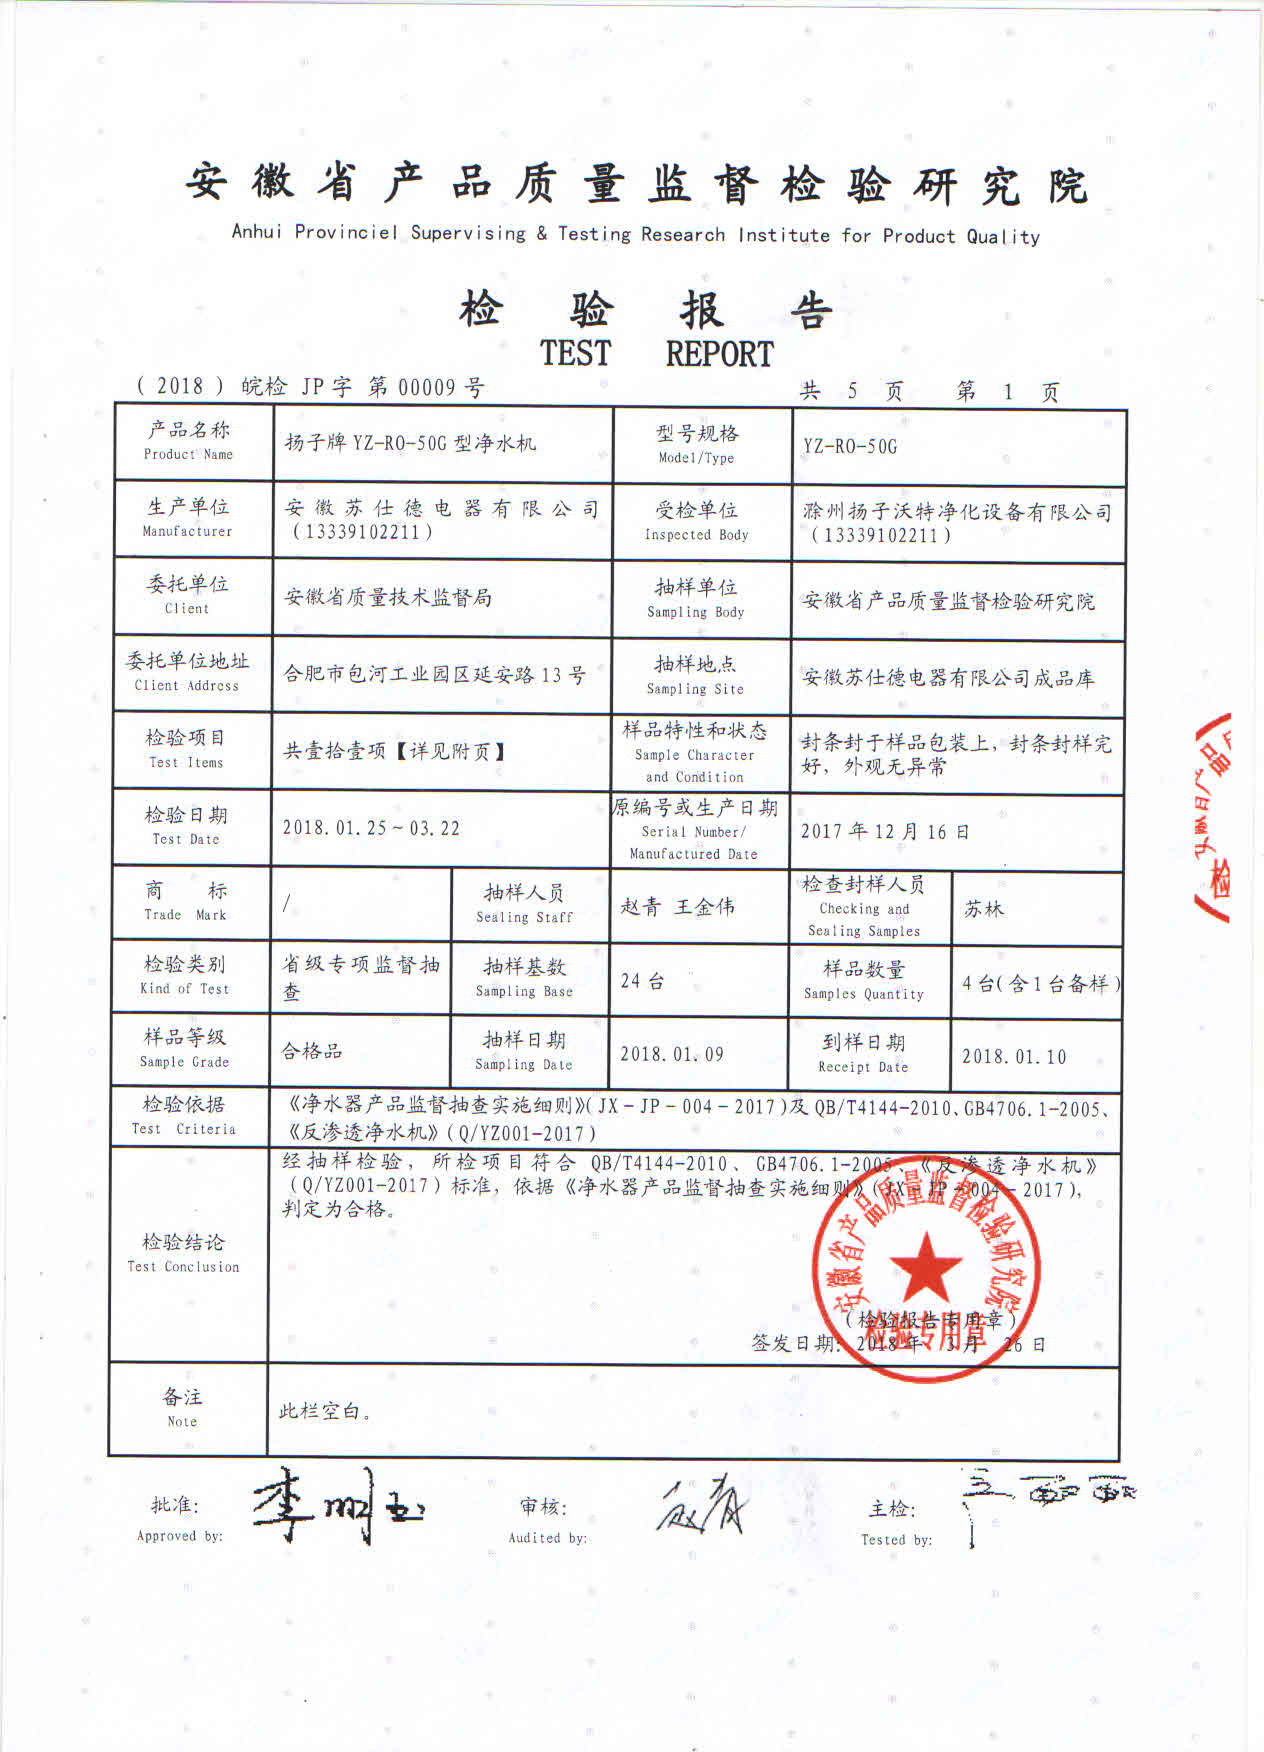 安徽省产品质量监督检验研究院
Anhui Provinciel Supervising & Testing Research Institute for Product Quality
检 验 报 告
TEST REPORT
(2018) 皖检 JP字 第00009号 共 5 页 第 1 页
产品名称
Product Name
扬子牌 YZ-RO-50G 型净水机
型号规格
Model/Type
YZ-RO-50G
生产单位
Manufacturer
安徽苏仕德电器有限公司
(13339102211)
受检单位
Inspected Body
滁州扬子沃特净化设备有限公司
(13339102211)
委托单位
Client
安徽省质量技术监督局
抽样单位
Sampling Body
安徽省产品质量监督检验研究院
委托单位地址
Client Address
合肥市包河工业园区延安路13号
抽样地点
Sampling Site
安徽苏仕德电器有限公司成品库
检验项目
Test Items
共壹拾壹项【详见附页】
样品特性和状态
Sample Character
and Condition
封条封于样品包装上，封条封样完
好，外观无异常
检验日期
Test Date
2018.01.25~03.22
原编号或生产日期
Serial Number/
Manufactured Date
2017年12月16日
商 标
Trade Mark
/
抽样人员
Sealing Staff
赵青 王金伟
检查封样人员
Checking and
Sealing Samples
苏林
检验类别
Kind of Test
省级专项监督抽
查
抽样基数
Sampling Base
24台
样品数量
Samples Quantity
4台(含1台备样)
样品等级
Sample Grade
合格品
抽样日期
Sampling Date
2018.01.09
到样日期
Receipt Date
2018.01.10
检验依据
Test Criteria
《净水器产品监督抽查实施细则》(JX-JP-004-2017)及QB/T4144-2010、GB4706.1-2005、
《反渗透净水机》(Q/YZ001-2017)
检验结论
Test Conclusion
经抽样检验，所检项目符合 QB/T4144-2010、GB4706.1-2005、《反渗透净水机》
(Q/YZ001-2017)标准，依据《净水器产品监督抽查实施细则》(JX-JP-004-2017)，
判定为合格。
安徽省产品质量监督检验研究院
检验专用章
(检验报告专用章)
签发日期：2018年 3月 26日
备注
Note
此栏空白。
批准：
Approved by:
审核：
Audited by:
赵青
主检：
Tested by: